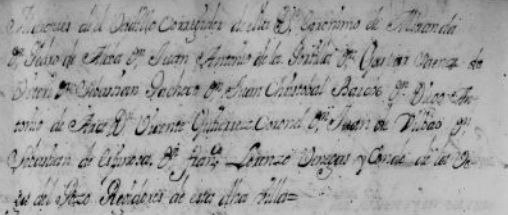 Marques del Vadillo Corregidor de ella Dn Geronimo de Miranda
Dn Pedro de Alava Dn Juan Antonio de la Portilla Dn Gaspar de
Dn Sebastian Pacheco Dn Juan Christobal Barcos Dn Diego An-
tonio de Arce Dn Vicente Gutierrez Coronel Dn Juan de Vilbao Dn
Sebastian de Espinosa, Dn franco Lorenzo Venegas y Conde de la Ve-
ga del Pozo Regidores de esta dha villa=